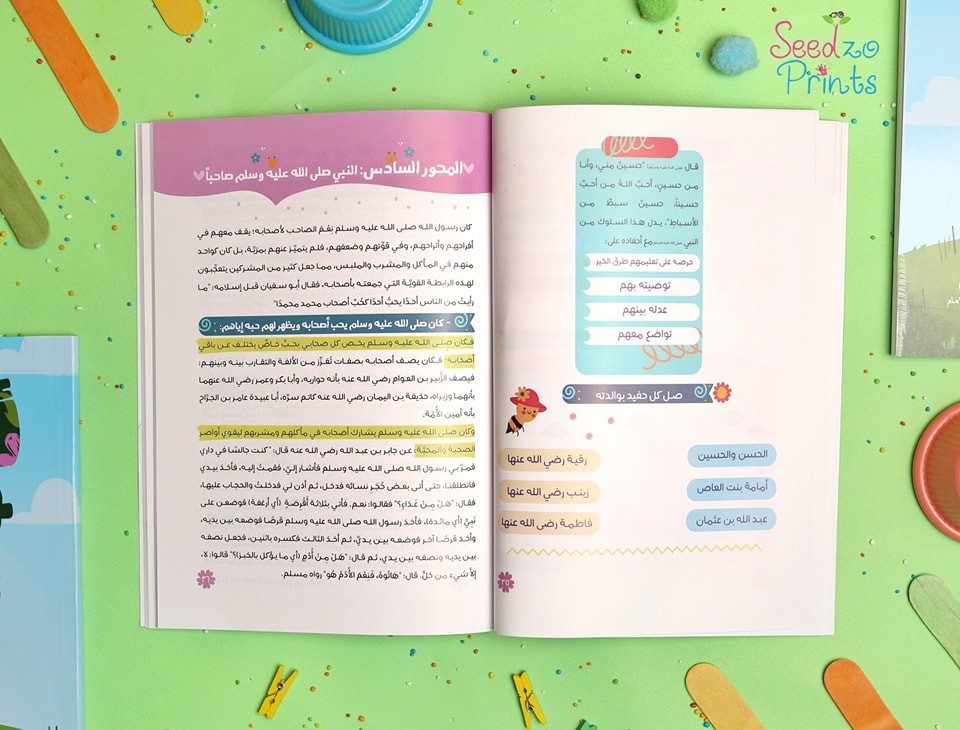 Seedzo
Prints
قال صلى الله عليه وسلم: "حسينٌ مني، وأنا
من حسينٍ، أحبَّ اللهُ من أحبَّ
حسيناً، حسينٌ سبطٌ من
الأسباطِ"، يدل هذا السلوك من
النبي صلى الله عليه وسلم مع أحفاده على:
حرصه على تعليمهم طرق الخير
توصيته بهم
عدله بينهم
تواضع معهم
صل كل حفيد بوالدته
الحسن والحسين
رقية رضي الله عنها
أمامة بنت العاص
زينب رضي الله عنها
عبد الله بن عثمان
فاطمة رضي الله عنها
٢٥
المحور السادس: النبي صلى الله عليه وسلم صاحباً
كان رسول الله صلى الله عليه وسلم نِعْمَ الصاحب لأصحابه؛ يقف معهم في
أفراحهم وأتراحهم، وفي قوّتهم وضعفهم، فلم يتميَّز عنهم بمزيّة، بل كان كواحد
منهم في المأكل والمشرب والملبس، مما جعل كثير من المشركين يتعجَّبون
لهذه الرابطة القويّة التي جمعته بأصحابه، فقال أبو سفيان قبل إسلامه: "ما
رأيتُ من الناس أحدًا يحبُّ أحدًا كحُبّ أصحاب محمد محمدًا"
- كان صلى الله عليه وسلم يحب أصحابه ويظهر لهم حبه إياهم:
فكان صلى الله عليه وسلم يخص كل صحابي بحبّ خاصٍّ يختلف عن باقي
أصحابه؛ فكان يصف أصحابه بصفات تُعزِّز من الألفة والتقارب بينه وبينهم:
فيصف الزُّبير بن العوام رضي الله عنه بأنه حواريه، وأبا بكر وعمر رضي الله عنهما
بأنهما وزيراه، حذيفة بن اليمان رضي الله عنه كاتم سرّه، أبا عبيدة عامر بن الجرّاح
بأنه أمين الأُمَّة.
وكان صلى الله عليه وسلم يشارك أصحابه في مأكلهم ومشربهم ليقوي أواصر
الصحبة والمحبّة: عن جابر بن عبد الله رضي الله عنه قال: "كنت جالسًا في داري
فمرَّ بي رسول الله صلى الله عليه وسلم فأشار إليَّ، فقمتُ إليه، فأخذ بيدي
فانطلقنا، حتى أتى بعض حُجَرِ نسائه فدخل، ثم أذن لي فدخلتُ والحجاب عليها،
فقال: "هَلْ مِنْ غَدَاءٍ؟" فقالوا: نعم. فأُتي بثلاثة أقْرِصَةٍ (أي أرغفة) فوضعن على
نَبِيٍّ (أي مائدة)، فأخذ رسول الله صلى الله عليه وسلم قُرصًا فوضعه بين يديه،
وأخذ قرصًا آخر فوضعه بين يديَّ، ثم أخذ الثالث فكسره باثنين، فجعل نصفه
بين يديه ونصفه بين يدي، ثم قال: "هَلْ مِنْ أُدُمٍ (أي ما يؤكل بالخبز)؟" قالوا: لا،
إلاَّ شيء من خلٍّ. قال: "هَاتُوهُ، فَنِعْمَ الأُدُمُ هُوَ" رواه مسلم.